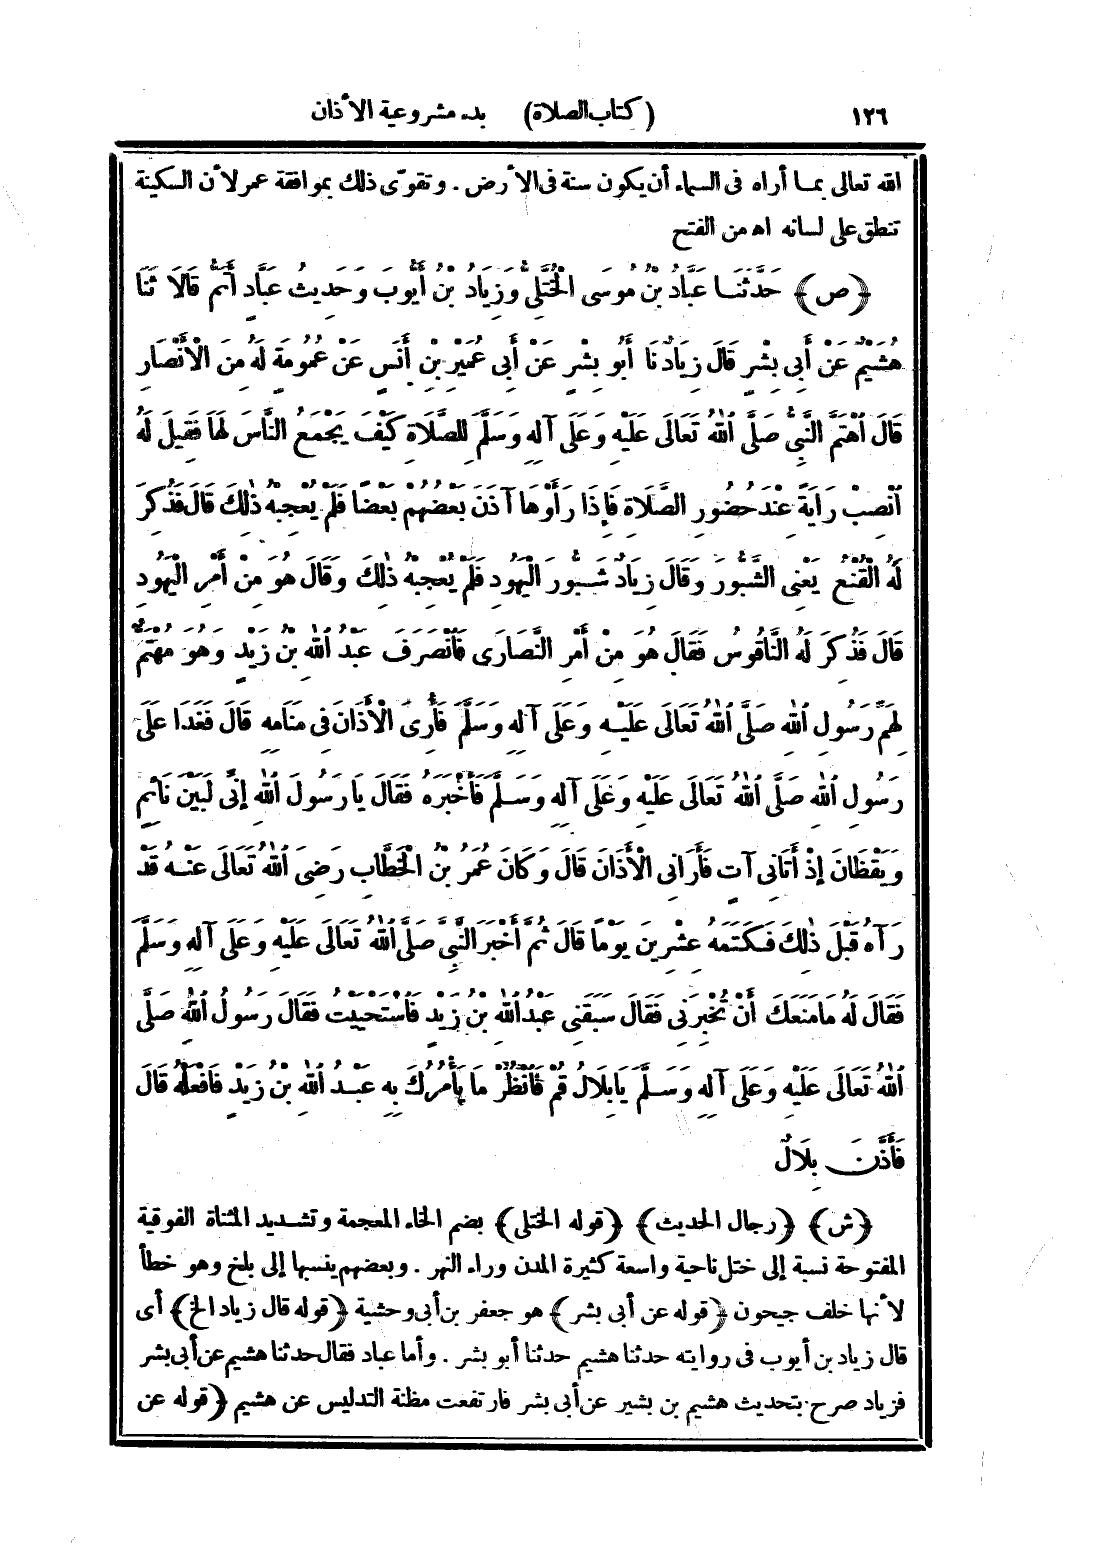 ١٢٦ (كتاب الصلاة) بدء مشروعية الأذان
الله تعالى بمـا أراه فى السماء أن يكون سنة فى الأرض . وتقوّى ذلك بموافقة عمر لأن السكينة
تنطق على لسانه اه من الفتح
﴿ص﴾ حَدَّثَنَـا عَبَّادُ بْنُ مُوسَى الْخُتَّلِيُّ وَزِيَادُ بْنُ أَيُّوبَ وَحَدِيثُ عَبَّادٍ أَتَمُّ قَالَا ثَنَا
هُشَيْمٌ عَنْ أَبِى بِشْرٍ قَالَ زِيَادٌ نَا أَبُو بِشْرٍ عَنْ أَبِى عُمَيْرِ بْنِ أَنَسٍ عَنْ عُمُومَةٍ لَهُ مِنَ الْأَنْصَارِ
قَالَ اهْتَمَّ النَّبِىُّ صَلَّى اللهُ تَعَالَى عَلَيْهِ وَعَلَى آلِهِ وَسَلَّمَ لِلصَّلَاةِ كَيْفَ يَجْمَعُ النَّاسَ لَهَا فَقِيلَ لَهُ
انْصِبْ رَايَةً عِنْدَ حُضُورِ الصَّلَاةِ فَإِذَا رَأَوْهَا آذَنَ بَعْضُهُمْ بَعْضًا فَلَمْ يُعْجِبْهُ ذٰلِكَ قَالَ فَذُكِرَ
لَهُ الْقُنْعُ يَعْنِى الشَّبُّورَ وَقَالَ زِيَادٌ شَبُّورَ الْيَهُودِ فَلَمْ يُعْجِبْهُ ذٰلِكَ وَقَالَ هُوَ مِنْ أَمْرِ الْيَهُودِ
قَالَ فَذُكِرَ لَهُ النَّاقُوسُ فَقَالَ هُوَ مِنْ أَمْرِ النَّصَارَى فَانْصَرَفَ عَبْدُ اللهِ بْنُ زَيْدٍ وَهُوَ مُهْتَمٌّ
لِهَمِّ رَسُولِ اللهِ صَلَّى اللهُ تَعَالَى عَلَيْـهِ وَعَلَى آلِهِ وَسَلَّمَ فَأُرِىَ الْأَذَانَ فِى مَنَامِهِ قَالَ فَغَدَا عَلَى
رَسُولِ اللهِ صَلَّى اللهُ تَعَالَى عَلَيْهِ وَعَلَى آلِهِ وَسَـلَّمَ فَأَخْبَرَهُ فَقَالَ يَا رَسُولَ اللهِ إِنِّى لَبَيْنَ نَائِمٍ
وَيَقْظَانَ إِذْ أَتَانِى آتٍ فَأَرَانِى الْأَذَانَ قَالَ وَكَانَ عُمَرُ بْنُ الْخَطَّابِ رَضِىَ اللهُ تَعَالَى عَنْـهُ قَدْ
رَآهُ قَبْلَ ذٰلِكَ فَكَتَمَهُ عِشْرِينَ يَوْمًا قَالَ ثُمَّ أَخْبَرَ النَّبِىَّ صَلَّى اللهُ تَعَالَى عَلَيْهِ وَعَلَى آلِهِ وَسَلَّمَ
فَقَالَ لَهُ مَا مَنَعَكَ أَنْ تُخْبِرَنِى فَقَالَ سَبَقَنِى عَبْدُ اللهِ بْنُ زَيْدٍ فَاسْتَحْيَيْتُ فَقَالَ رَسُولُ اللهِ صَلَّى
اللهُ تَعَالَى عَلَيْهِ وَعَلَى آلِهِ وَسَـلَّمَ يَا بِلَالُ قُمْ فَانْظُرْ مَا يَأْمُرُكَ بِهِ عَبْـدُ اللهِ بْنُ زَيْدٍ فَافْعَلْهُ قَالَ
فَأَذَّنَ بِلَالٌ
﴿ش﴾ ﴿رجال الحديث﴾ ﴿قوله الختلى﴾ بضم الخاء المعجمة وتشـديد المثناة الفوقية
المفتوحة نسبة إلى ختل ناحية واسعة كثيرة المدن وراء النهر . وبعضهم ينسبها إلى بلخ وهو خطأ
لأنها خلف جيحون ﴿قوله عن أبى بشر﴾ هو جعفر بن أبى وحشية ﴿قوله قال زياد الخ﴾ أى
قال زياد بن أيوب فى روايته حدثنا هشيم حدثنا أبو بشر . وأما عباد فقال حدثنا هشيم عن أبى بشر
فزياد صرح بتحديث هشيم بن بشير عن أبى بشر فارتفعت مظنة التدليس عن هشيم ﴿قوله عن